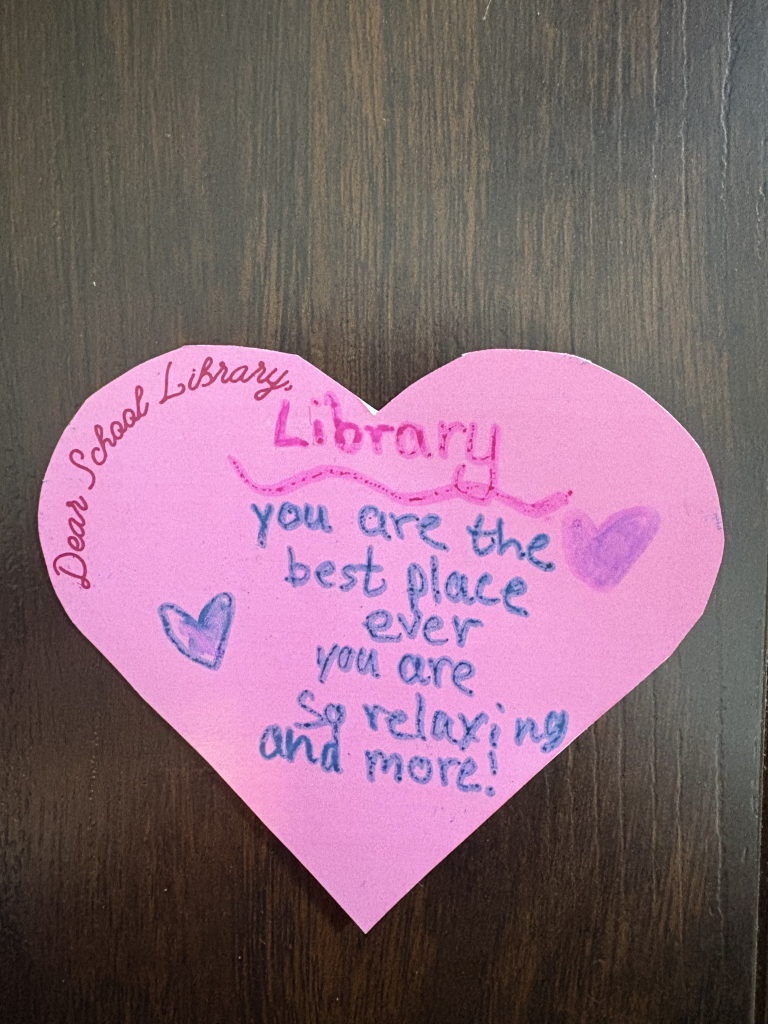 Dear School Library,
Library
you are the
best place
ever
you are
So relaxing
and more!